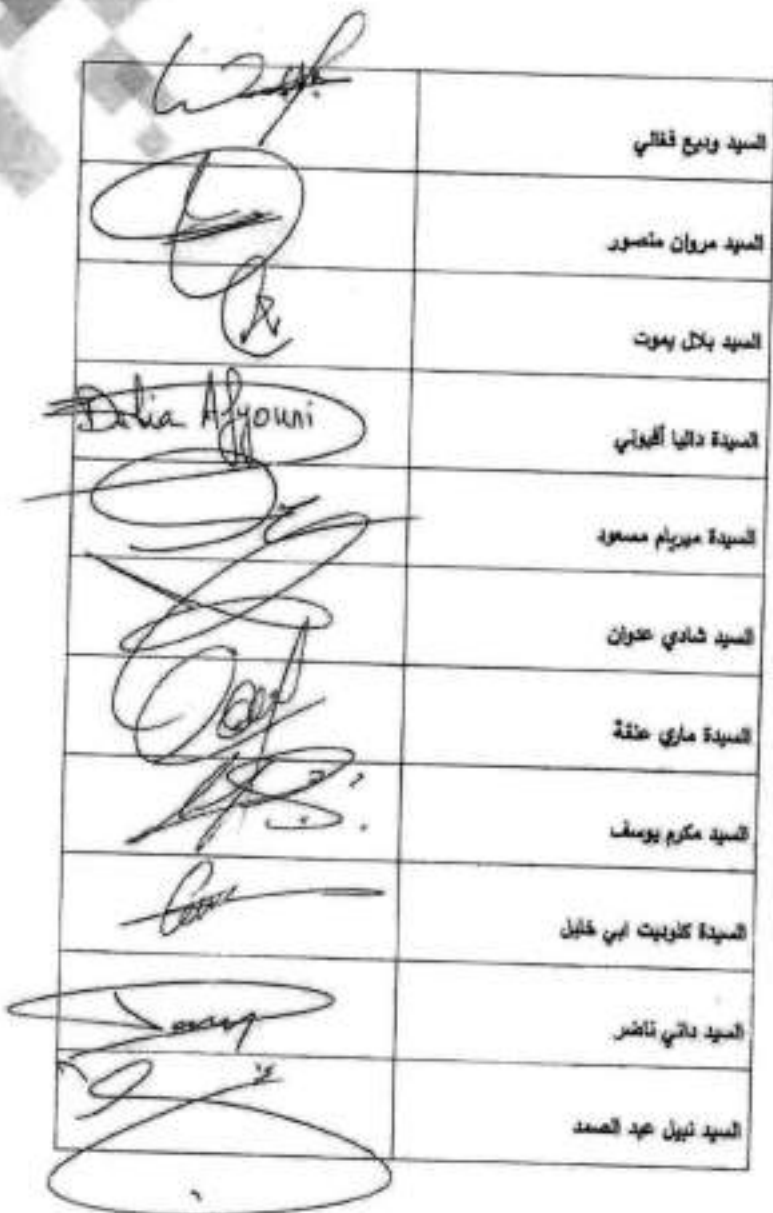 السيد وديع قغالي
السيد مروان منصور
السيد بلال يموت
السيدة داليا أفيوني
Dalia Afyouni
السيدة ميريام مسعود
السيد شادي عدوان
السيدة ماري عنقة
السيد مكرم يوسف
السيدة كلوديت ابي خليل
السيد داني ناضر
السيد نبيل عبد الصمد